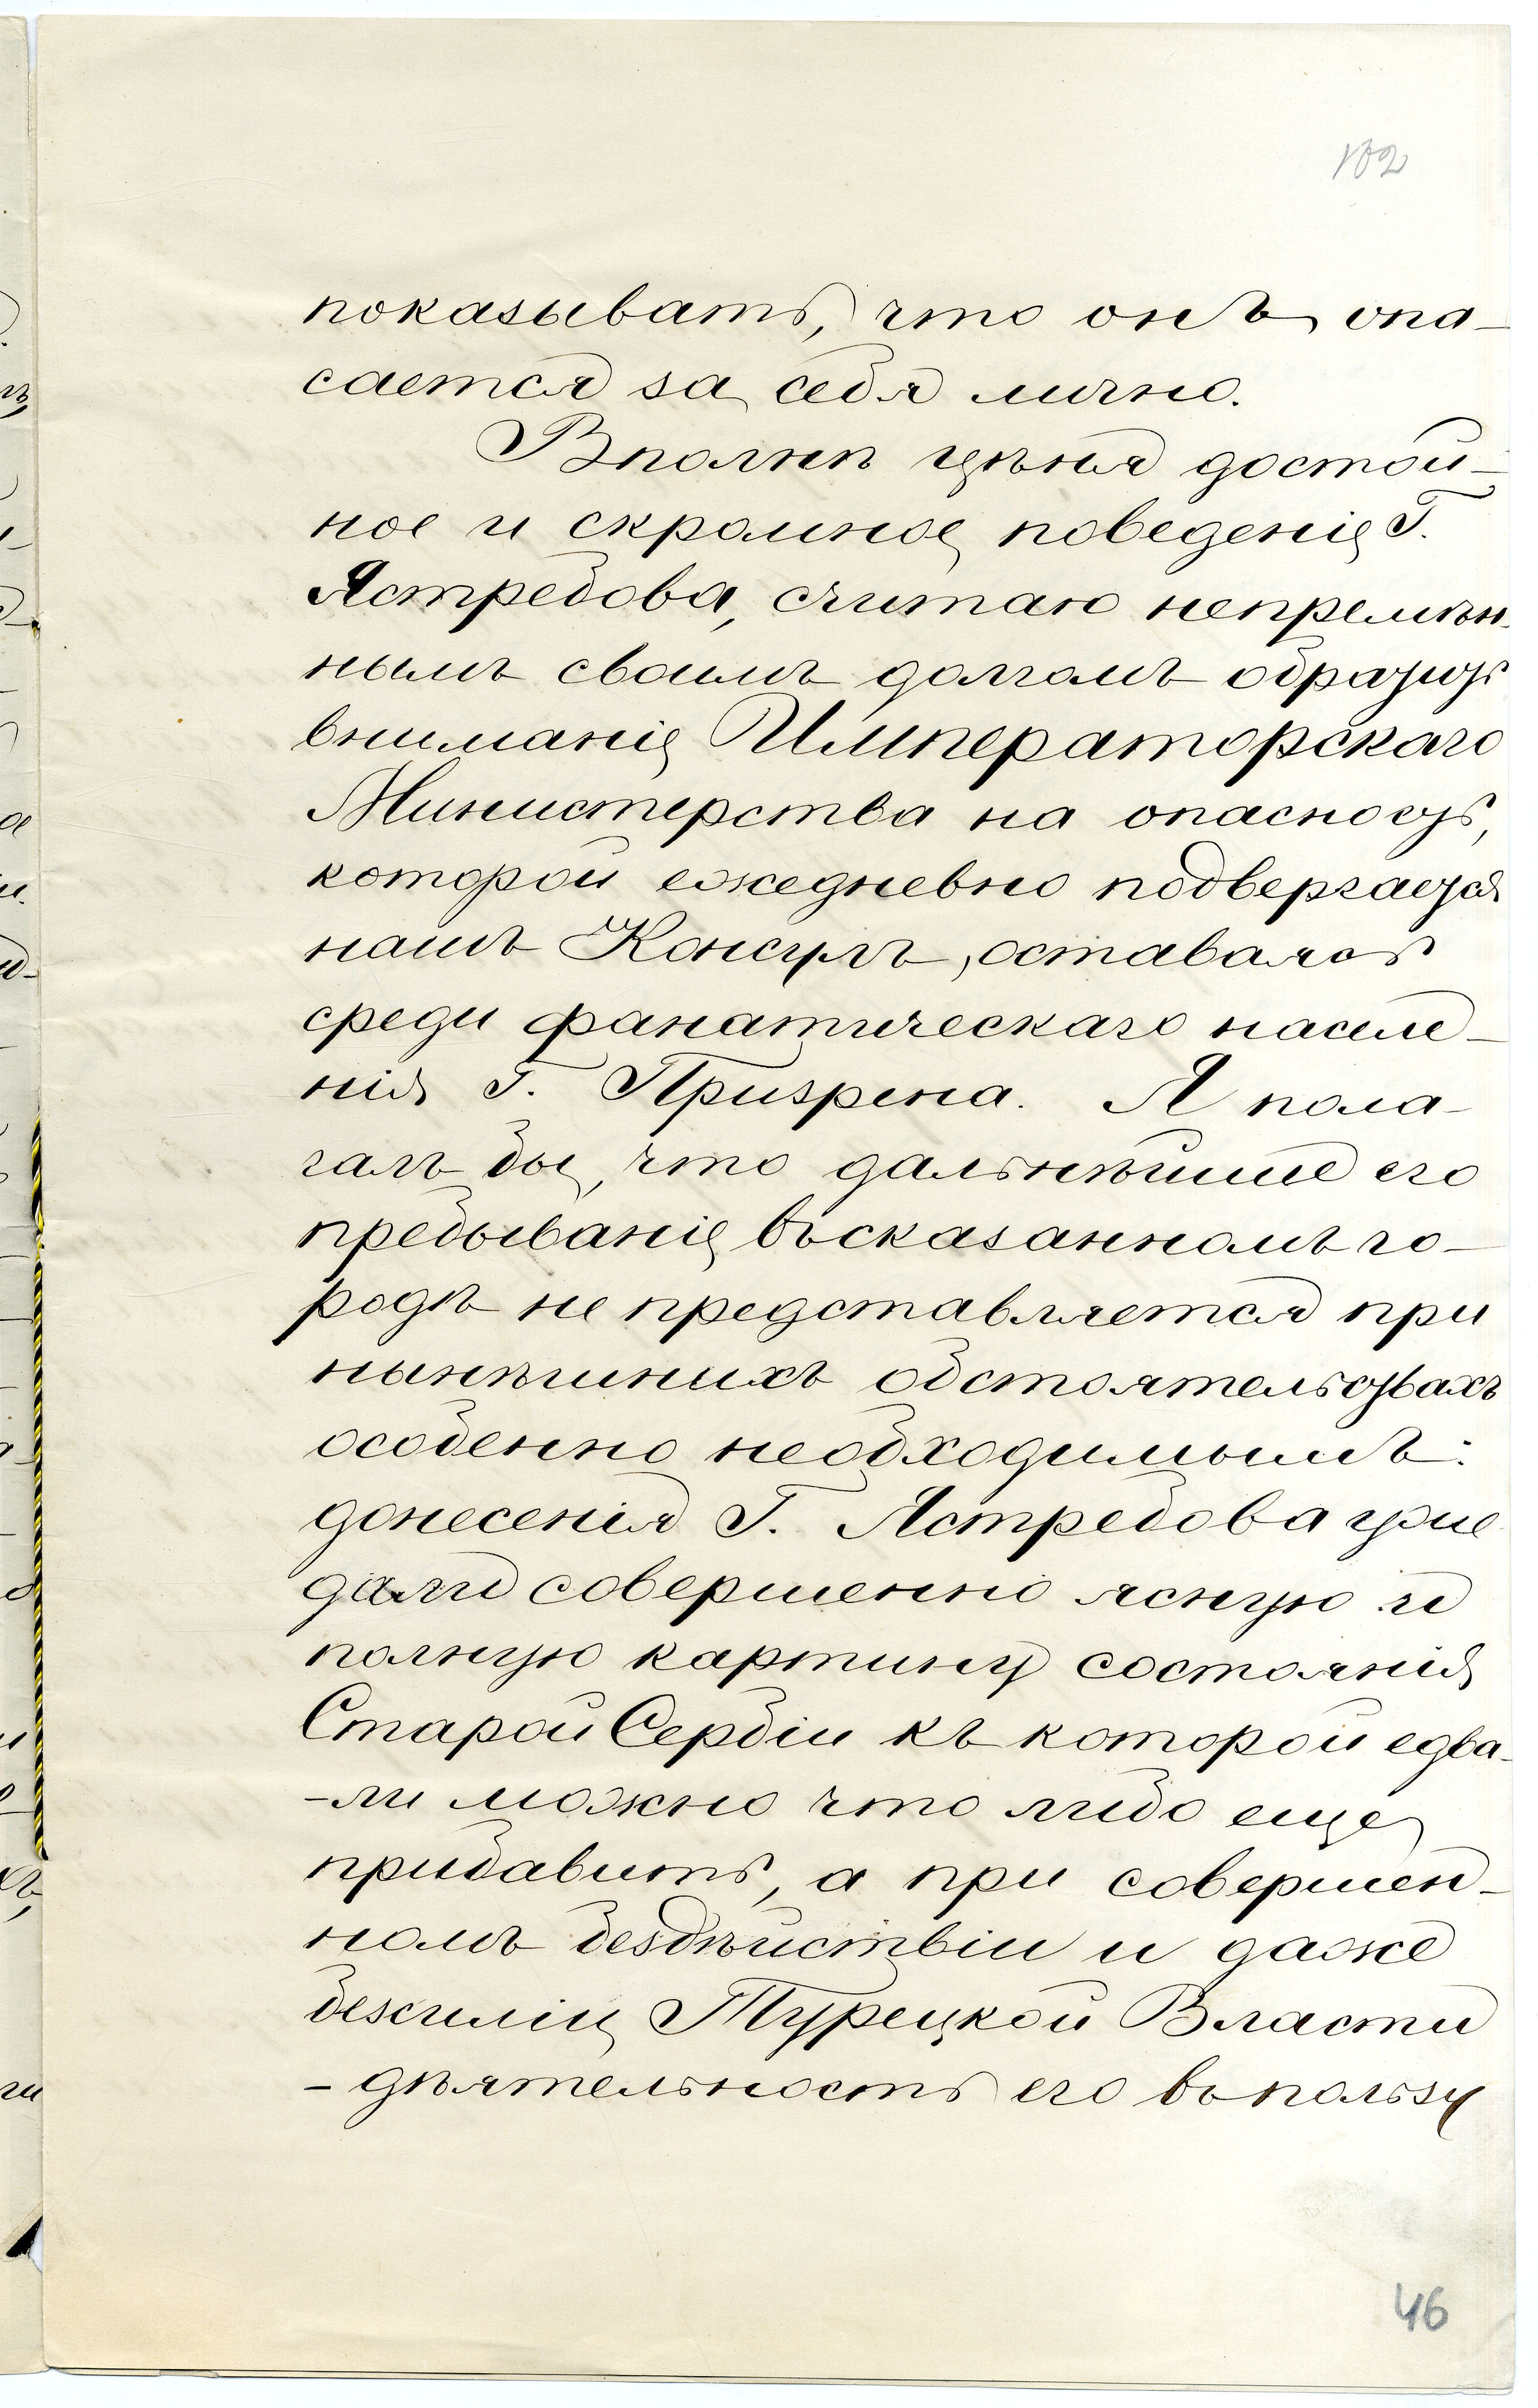 102
показывать, что онъ опа-
сается за себя лично.
Вполнѣ цѣня достой-
ное и скромное поведеніе Г.
Ястребова, считаю непремѣн-
нымъ своимъ долгомъ обратить
вниманіе Императорскаго
Министерства на опасность,
которой ежедневно подвергается
нашъ Консулъ, оставаясь
среди фанатическаго населе-
нія г. Призрена. Я пола-
галъ бы, что дальнѣйшее его
пребываніе въ сказанномъ го-
родѣ не представляется при
нынѣшнихъ обстоятельствахъ
особенно необходимымъ:
донесенія Г. Ястребова уже
дали совершенно ясную и
полную картину состоянія
Старой Сербіи къ которой едва-
-ли можно что либо еще
прибавить, а при совершен-
номъ бездѣйствіи и даже
безсиліи Турецкой Власти
- дѣятельность его въ пользу
46